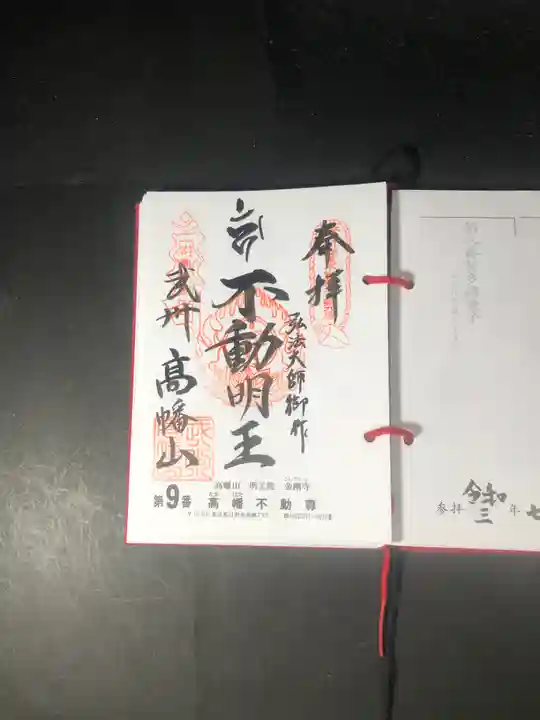 奉拝
弘法大師御作
不動明王
武州 高幡山
高幡山 明王院 金剛寺
第9番 高幡不動尊
令和
参拝 三 年 七